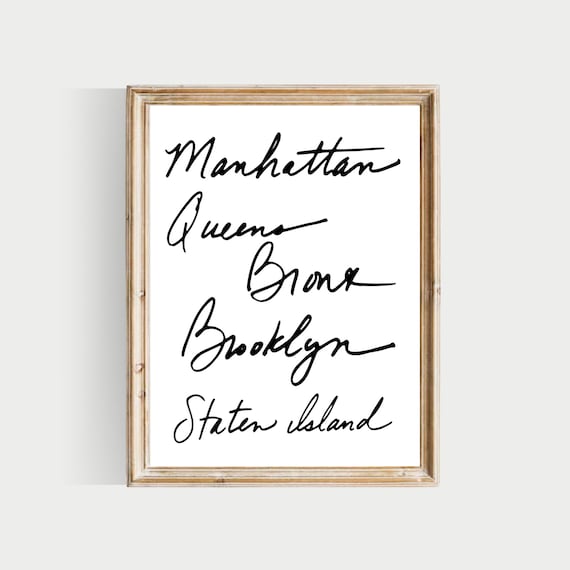 Manhattan
Queens
Bronx
Brooklyn
Staten Island